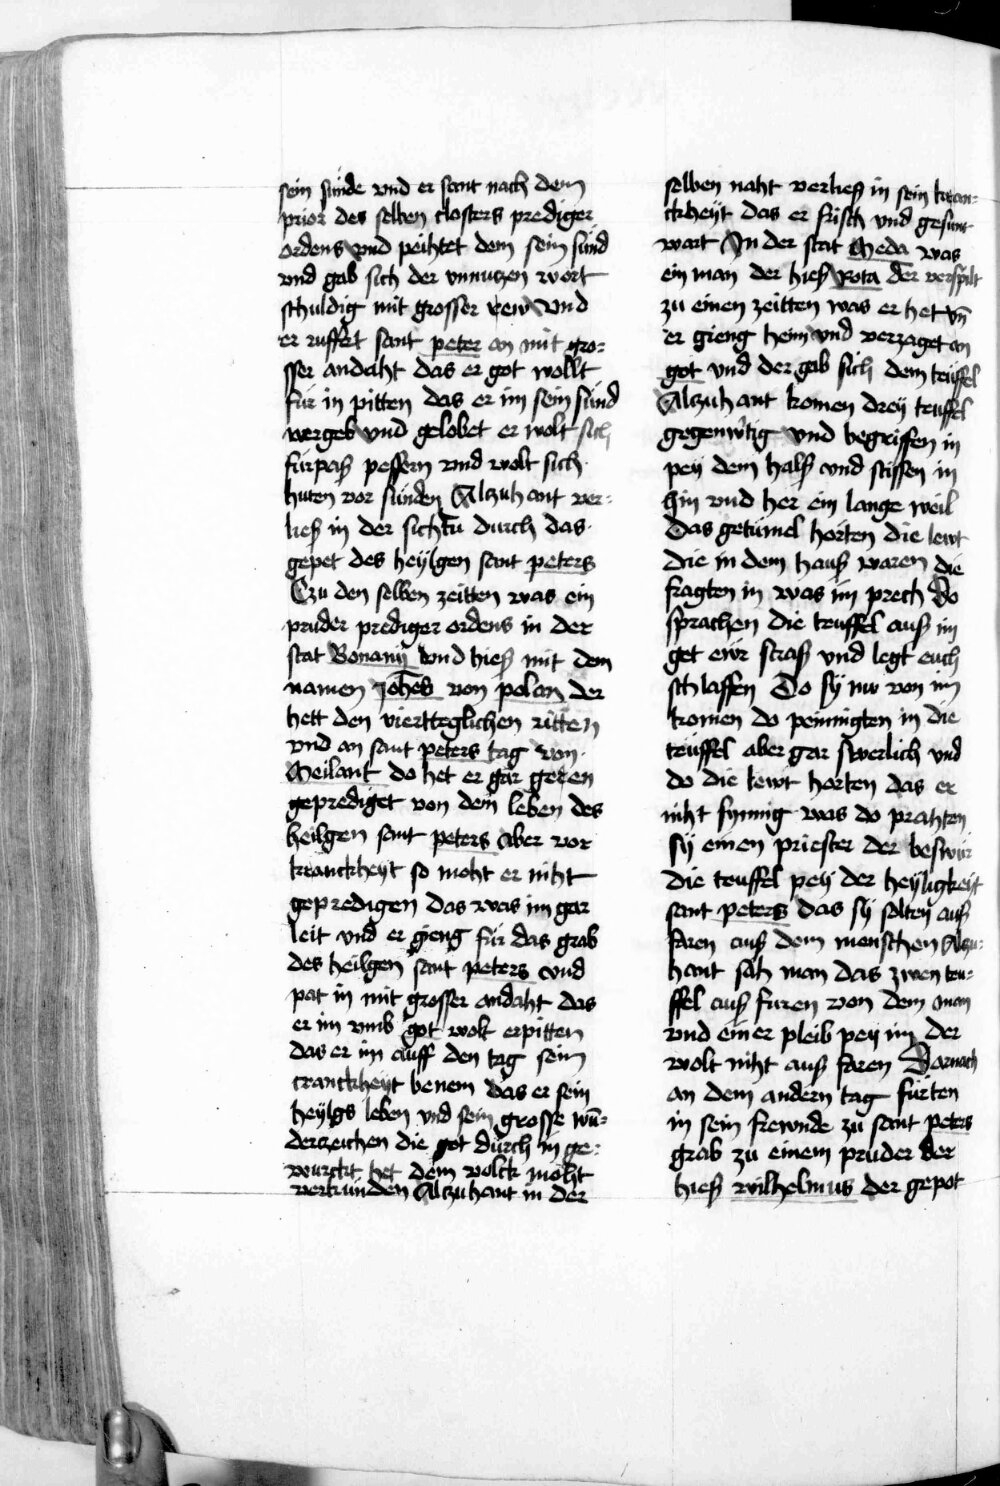 sein sunde vnd er sant nach dem
prior des selben closters prediger
ordens vnd peihtet dem sein sünd
vnd gab sich der vnnutzen wort
schuldig mit grosser rew vnd
er ruffert sant peter an mit gro-
sser andaht das er got wollt
für in pitten das er im sein sünd
vergeb vnd gelobet er wolt sich
fürpaß pessern vnd wolt sich
huten vor sünden Alzuhant ver-
ließ in der sichtu durch das
gepet des heylgen sant peters
Czu den selben zeitten was ein
pruder prediger ordens in der
stat Bonanij vnd hieß mit dem
namen Johēs von polan der
hett den viertteglichen ritten
vnd an sant peters tag von
Meilant do het er gar geren
geprediget von dem leben des
heilgen sant peters Aber vor
kranckheyt so moht er niht
gepredigen das was im gar
leit vnd er gieng für das grab
des heilgen sant peters vnd
pat in mit grosser andaht das
er im vmb got wolt erpitten
das er im auff den tag sein
cranckheyt benem das er sein
heylgs leben vnd sein grosse wū-
derzeichen die got durch in ge-
wurckt het dem volck moht
verkünden Alzuhant in der
selben naht verließ in sein kran-
ckheyt das er frisch vnd gesunt
wart In der stat Meda was
ein man der hieß Rota der verspilt
zu einen zeitten was er het vn̄
er gieng heim vnd verzaget an
got vnd der gab sich dem teuffel
Alzuhant komen drey teuffel
gegenwtig vnd begriffen in
pey dem halß vnd stissen in
hin vnd her ein lange weil
Das getümel horten die lewt
die in dem hauß waren die
fragten in was im prech do
sprachen die teuffel auß im
get ewr straß vnd legt euch
schlaffen Do sy nw von im
komen do peinnigten in die
teuffel aber gar swerlich vnd
do die lewt horten das er
niht synnig was do prahten
sy einen priester der beswur
die teuffel pey der heyligkeit
sant peters das sy solten auß
faren auß dem menschen Alzu-
hant sah man das zwen teu-
ffel auß furen von dem man
vnd einer pleib pey im der
wolt niht auß faren Darnach
an dem andern tag fürten
in sein frewnde zu sant peters
grab zu einem pruder der
hieß wilhelmus der gepot